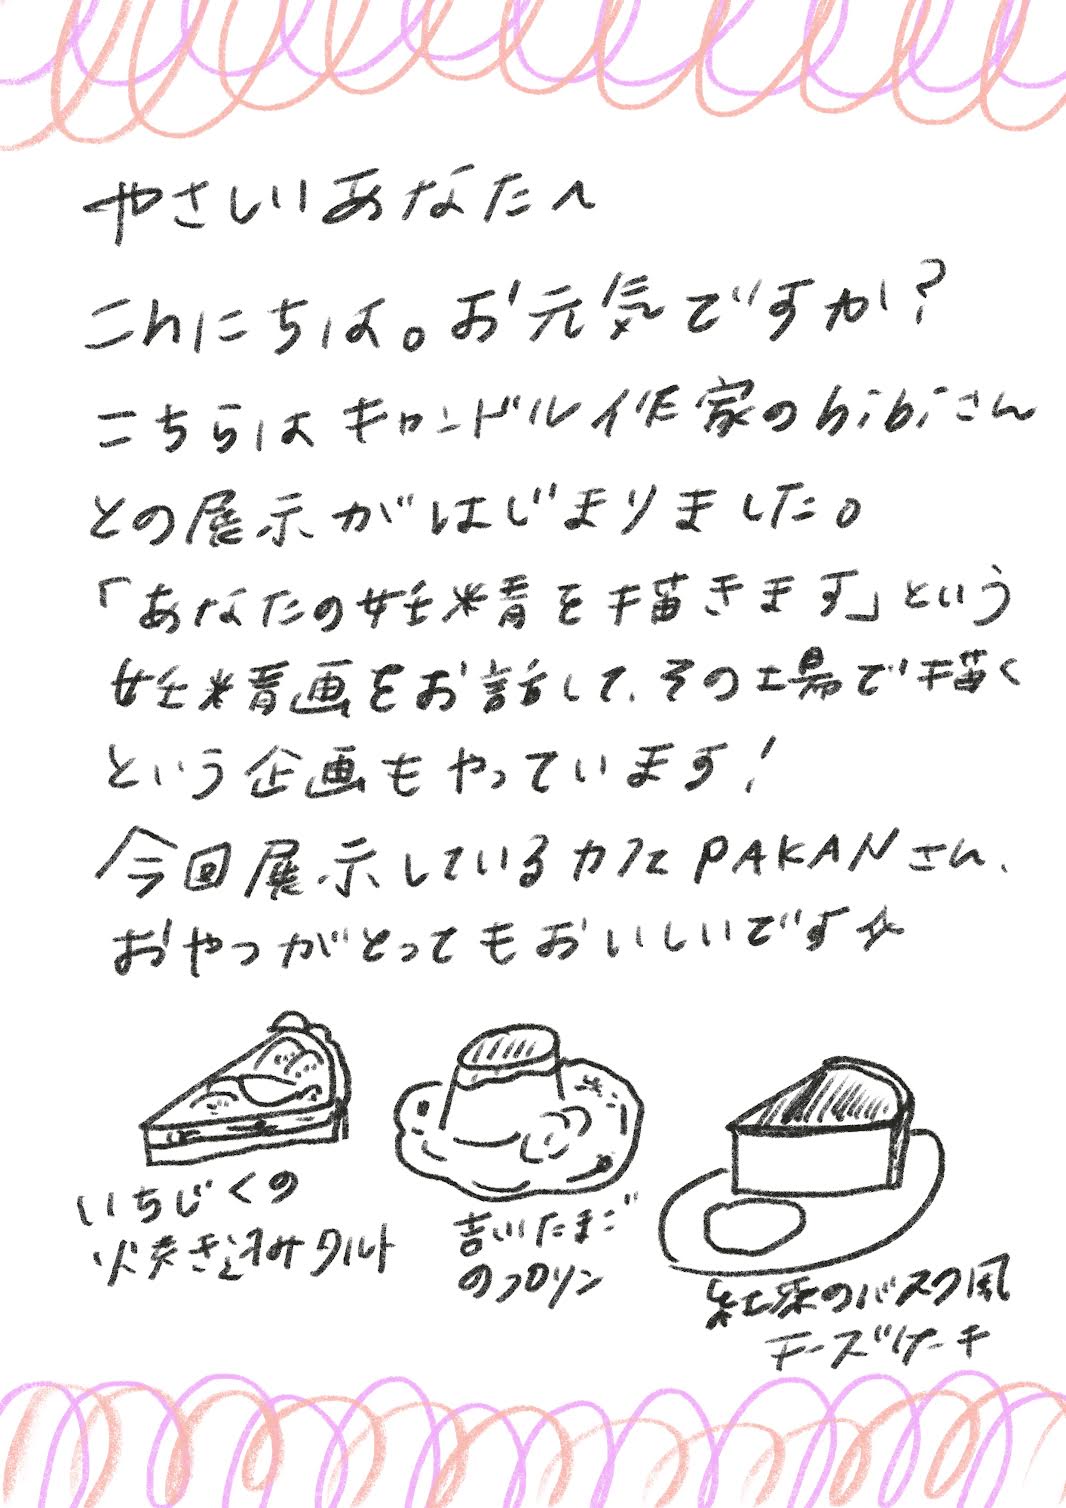 やさしいあなたへ
こんにちは。お元気ですか?
こちらはキャンドル作家のbibiさん
との展示がはじまりました。
「あなたの妖精を描きます」という
妖精画をお話して、その場で描く
という企画もやっています!
今回展示しているカフェPAKANさん、
おやつがとってもおいしいです☆
いちじくの
焼き込みタルト
吉川たまご
のプリン
紅茶のバスク風
チーズケーキ